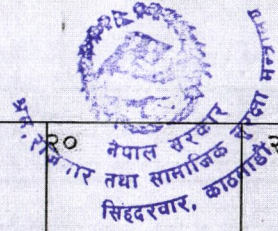 नेपाल सरकार
श्रम, रोजगार तथा सामाजिक सुरक्षा मन्त्रालय
सिंहदरबार, काठमाडौं
२०